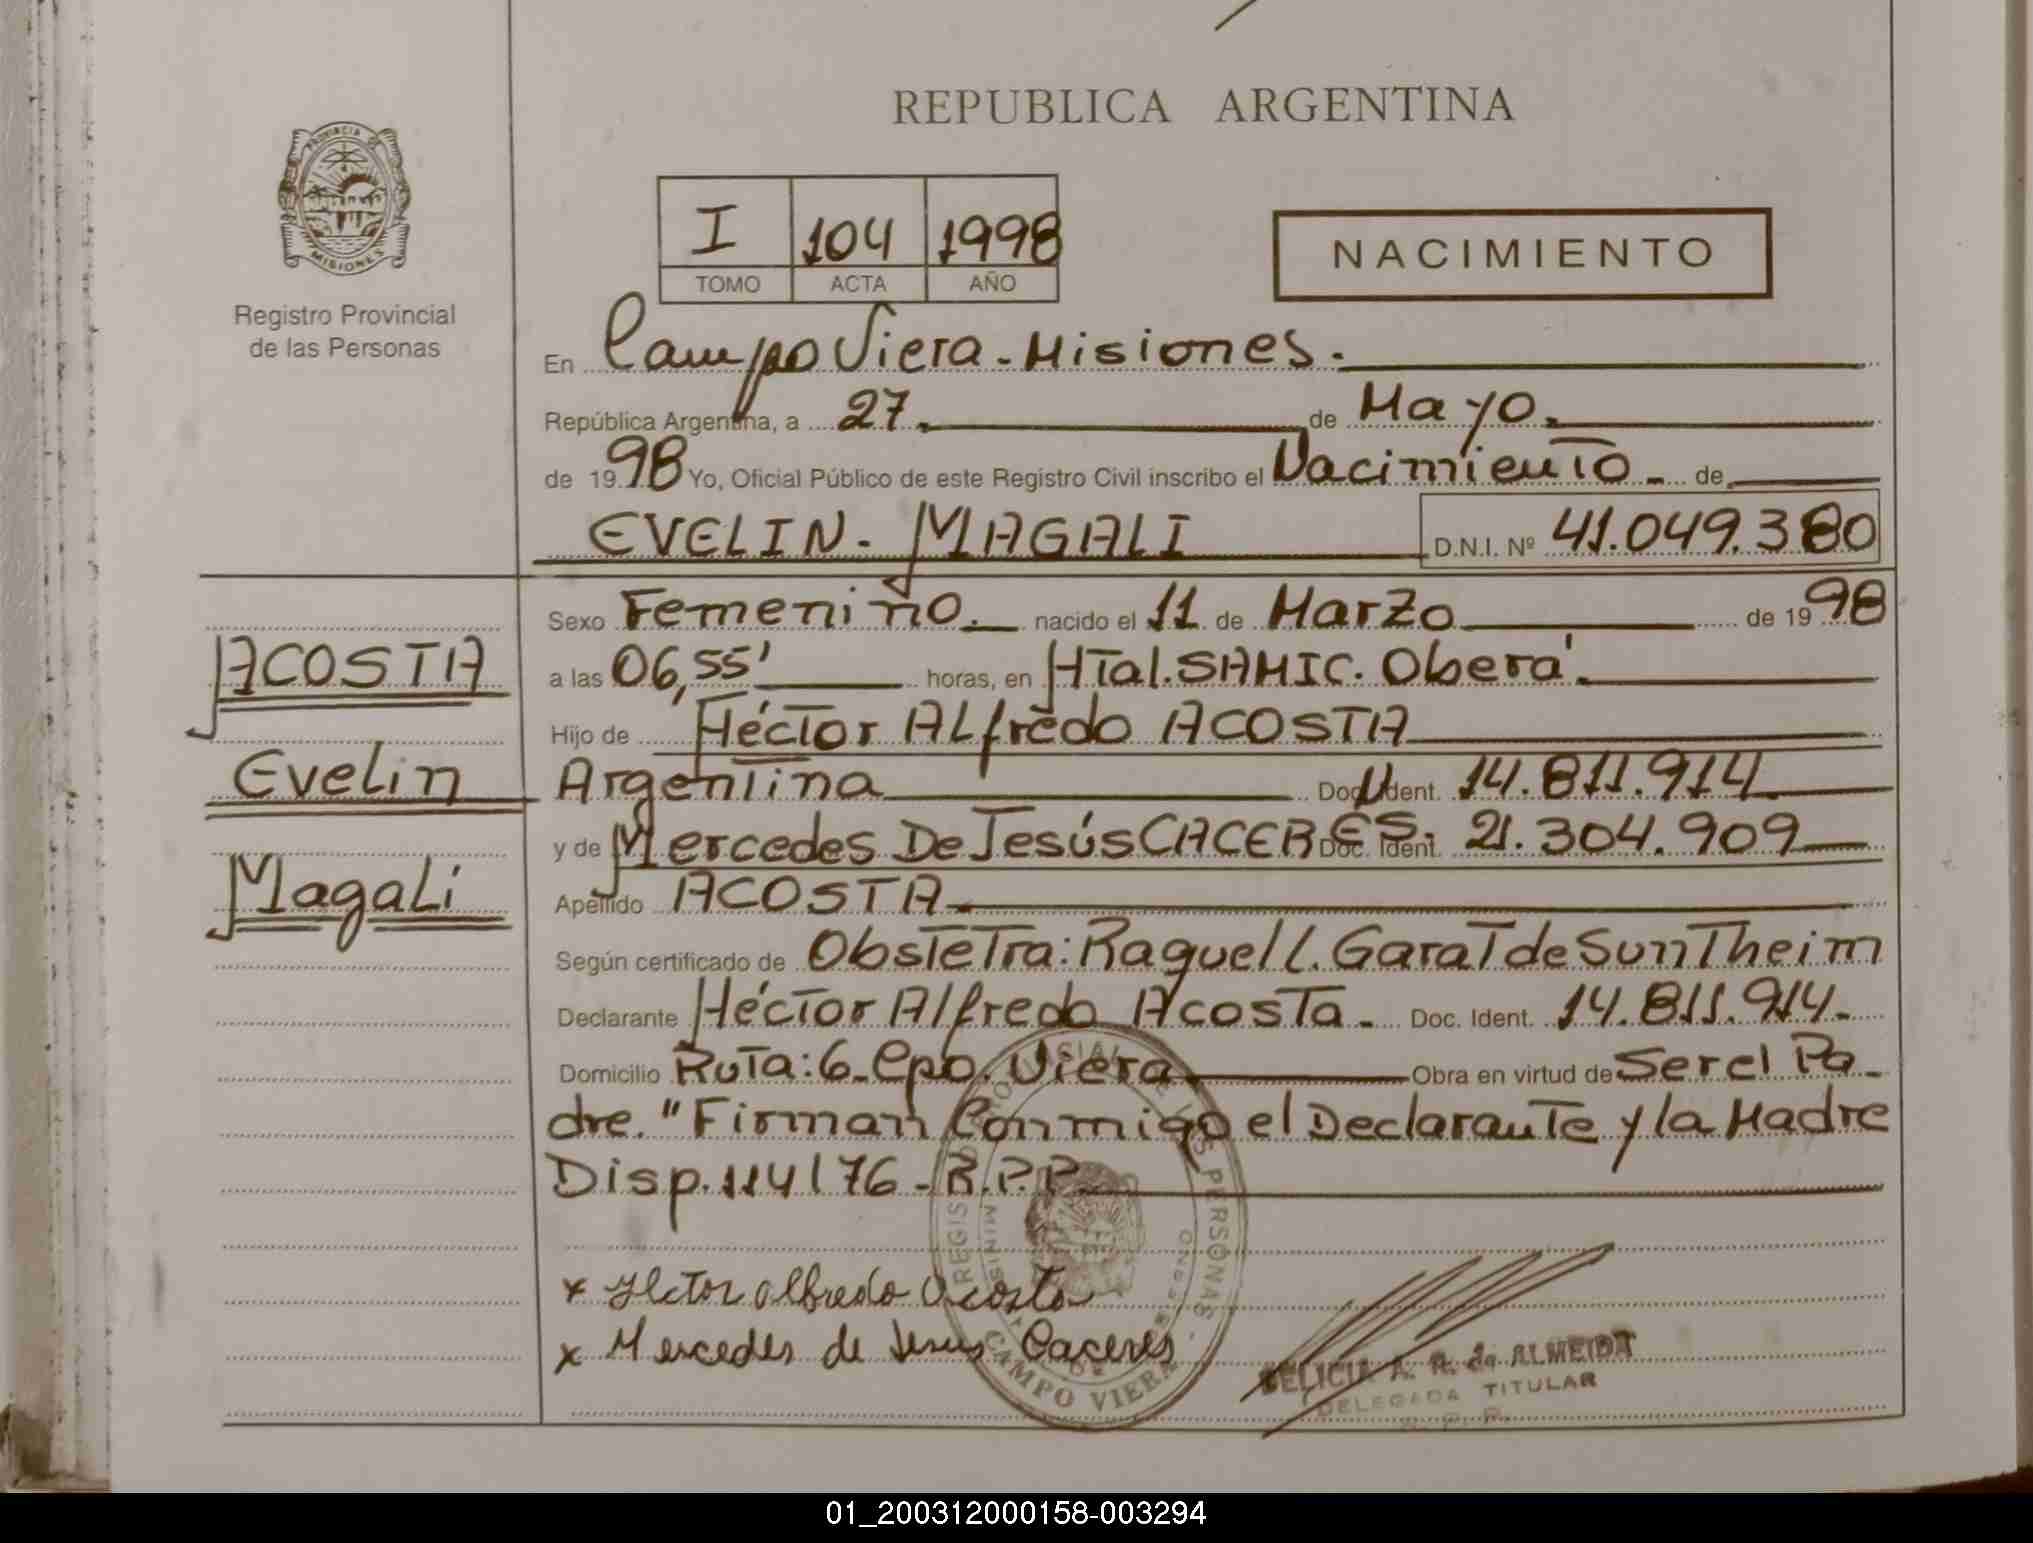 REPUBLICA ARGENTINA
PROVINCIA DE
MISIONES
Registro Provincial
de las Personas
I 104 1998
TOMO ACTA AÑO
NACIMIENTO
En Campo Viera - Misiones.
República Argentina, a 27. de Mayo.
de 1998 Yo, Oficial Público de este Registro Civil inscribo el Nacimiento - de
EVELIN - MAGALI D.N.I. Nº 41.049.380
ACOSTA
Evelin
Magali
Sexo Femenino. nacido el 11 de Marzo de 1998
a las 06,55' horas, en Htal. SAMIC. Oberá.
Hijo de Héctor Alfredo ACOSTA
Argentina Doc. Ident. 14.811.914.
y de Mercedes De Jesús CACERES. Doc. Ident. 21.304.909
Apellido ACOSTA
Según certificado de Obstetra: Raquel L. Garat de Suntheim
Declarante Héctor Alfredo Acosta. Doc. Ident. 14.811.914.
Domicilio Ruta: 6 - Cpo. Viera Obra en virtud de Ser el Pa-
dre. "Firman Conmigo el Declarante y la Madre
Disp. 114/76 - R.P.P.
x Hector Alfredo Acosta
x Mercedes de Jesus Caceres
PERSONAS
CAMPO VIERA
FELICIA A. R. de ALMEIDA
DELEGADA TITULAR
R. P. P.
01_200312000158-003294